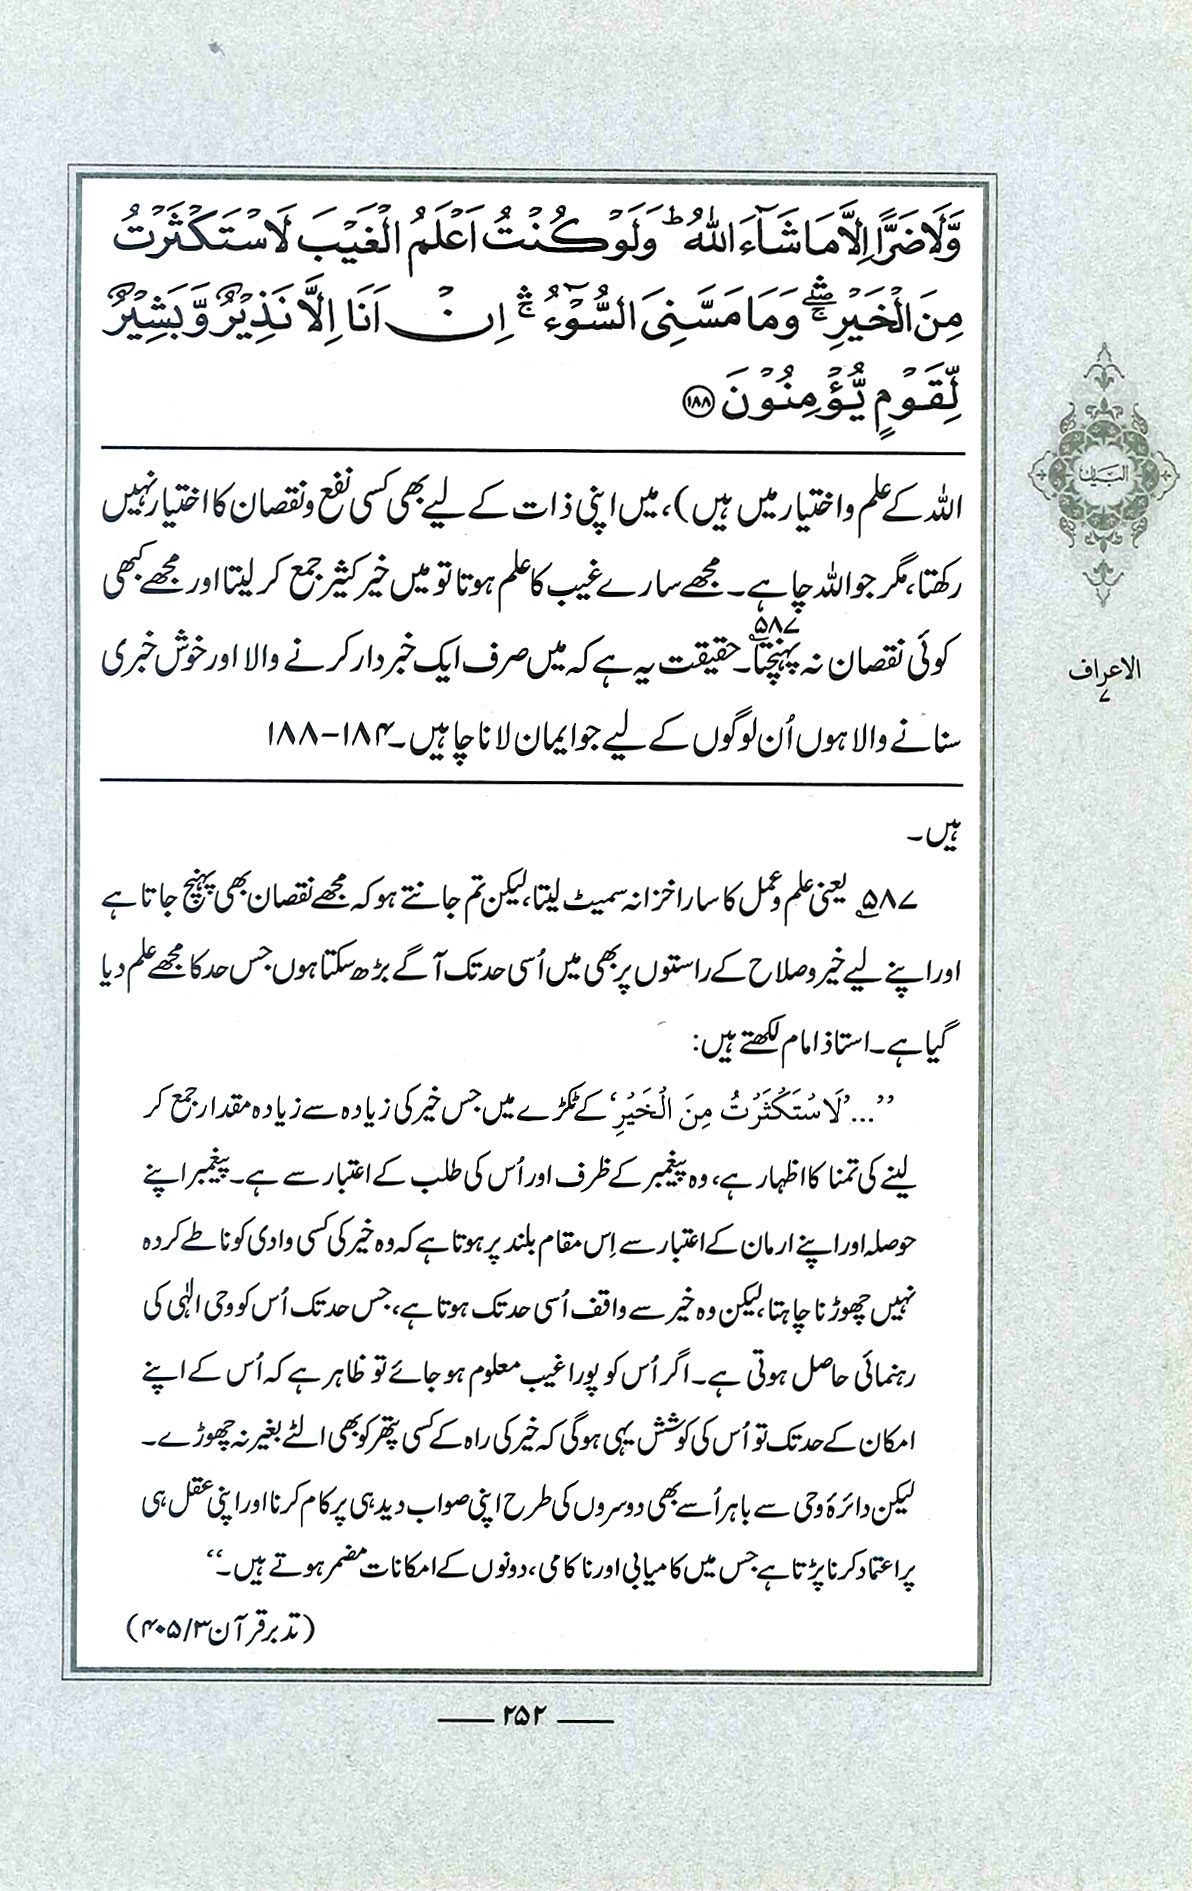 وَّلَا ضَرًّا اِلَّا مَا شَآءَ اللّٰهُ ؕ وَلَوۡ كُنۡتُ اَعۡلَمُ الۡغَيۡبَ لَاسۡتَكۡثَرۡتُ
مِنَ الۡخَيۡرِ ۖۛۚ وَمَا مَسَّنِىَ السُّوۡٓءُ ۛۚ اِنۡ اَنَا اِلَّا نَذِيۡرٌ وَّبَشِيۡرٌ
لِّقَوۡمٍ يُّؤۡمِنُوۡنَ ﴿۱۸۸﴾
اللہ کے علم و اختیار میں ہیں)، میں اپنی ذات کے لیے بھی کسی نفع و نقصان کا اختیار نہیں
رکھتا، مگر جو اللہ چاہے۔ مجھے سارے غیب کا علم ہوتا تو میں خیر کثیر جمع کر لیتا اور مجھے کبھی
کوئی نقصان نہ پہنچتا۔۵۸۷ حقیقت یہ ہے کہ میں صرف ایک خبردار کرنے والا اور خوش خبری
سنانے والا ہوں اُن لوگوں کے لیے جو ایمان لانا چاہیں۔ ۱۸۴-۱۸۸
ہیں۔
۵۸۷؂ یعنی علم و عمل کا سارا خزانہ سمیٹ لیتا، لیکن تم جانتے ہو کہ مجھے نقصان بھی پہنچ جاتا ہے
اور اپنے لیے خیر و صلاح کے راستوں پر بھی میں اُسی حد تک آگے بڑھ سکتا ہوں جس حد کا مجھے علم دیا
گیا ہے۔ استاذ امام لکھتے ہیں:
’’...’لَاسۡتَكۡثَرۡتُ مِنَ الۡخَيۡرِ‘ کے ٹکڑے میں جس خیر کی زیادہ سے زیادہ مقدار جمع کر
لینے کی تمنا کا اظہار ہے، وہ پیغمبر کے ظرف اور اُس کی طلب کے اعتبار سے ہے۔ پیغمبر اپنے
حوصلہ اور اپنے ارمان کے اعتبار سے اِس مقام بلند پر ہوتا ہے کہ وہ خیر کی کسی وادی کو ناطے کردہ
نہیں چھوڑنا چاہتا، لیکن وہ خیر سے واقف اُسی حد تک ہوتا ہے، جس حد تک اُس کو وحی الٰہی کی
رہنمائی حاصل ہوتی ہے۔ اگر اُس کو پورا غیب معلوم ہو جائے تو ظاہر ہے کہ اُس کے اپنے
امکان کے حد تک تو اُس کی کوشش یہی ہوگی کہ خیر کی راہ کے کسی پتھر کو بھی الٹے بغیر نہ چھوڑے۔
لیکن دائرۂ وحی سے باہر اُسے بھی دوسروں کی طرح اپنی صواب دید ہی پر کام کرنا اور اپنی عقل ہی
پر اعتماد کرنا پڑتا ہے جس میں کامیابی اور ناکامی، دونوں کے امکانات مضمر ہوتے ہیں۔‘‘
(تدبر قرآن ۳/ ۴۰۵)
البیان
الاعراف
۷
۲۵۲